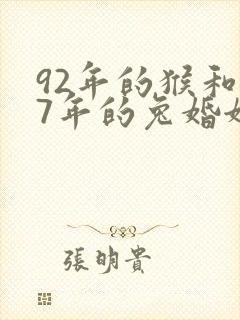 92年的猴和
7年的兔婚
張明貴